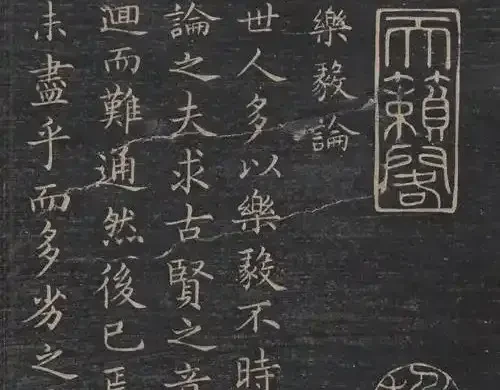 天籟閣
樂毅論
世人多以樂毅不時
論之夫求古賢之意
迴而難通然後已焉
未盡乎而多劣之